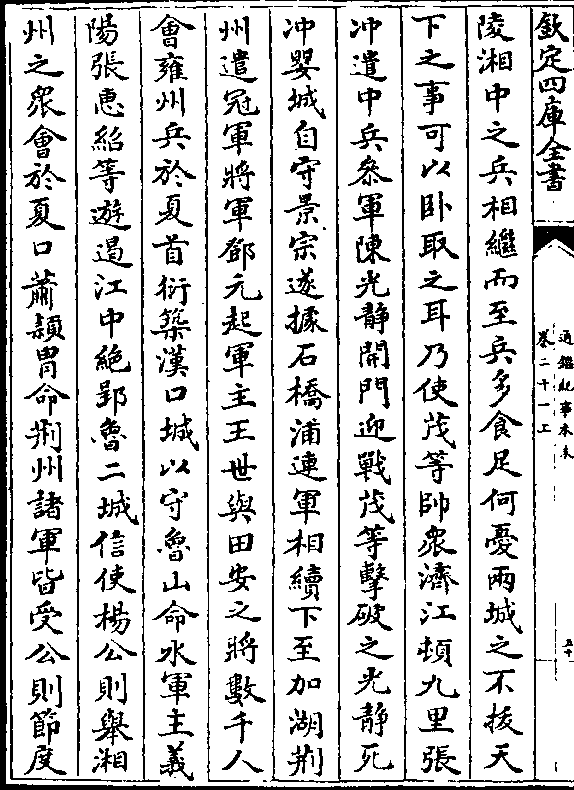 欽定四庫全書
通鑑紀事本末
卷二十一上
五十
陵湘中之兵相繼而至兵多食足何憂兩城之不拔天
下之事可以卧取之耳乃使茂等帥衆濟江頓九里張
冲遣中兵叅軍陳光靜開門迎戰茂等擊破之光靜死
冲嬰城自守景宗遂據石橋浦連軍相續下至加湖荆
州遣冠軍將軍鄧元起軍主王世與田安之將數千人
會雍州兵於夏首衍築漢口城以守魯山命水軍主義
陽張惠紹等遊遏江中絶郢魯二城信使楊公則舉湘
州之衆會於夏口蕭頴胄命荆州諸軍皆受公則節度